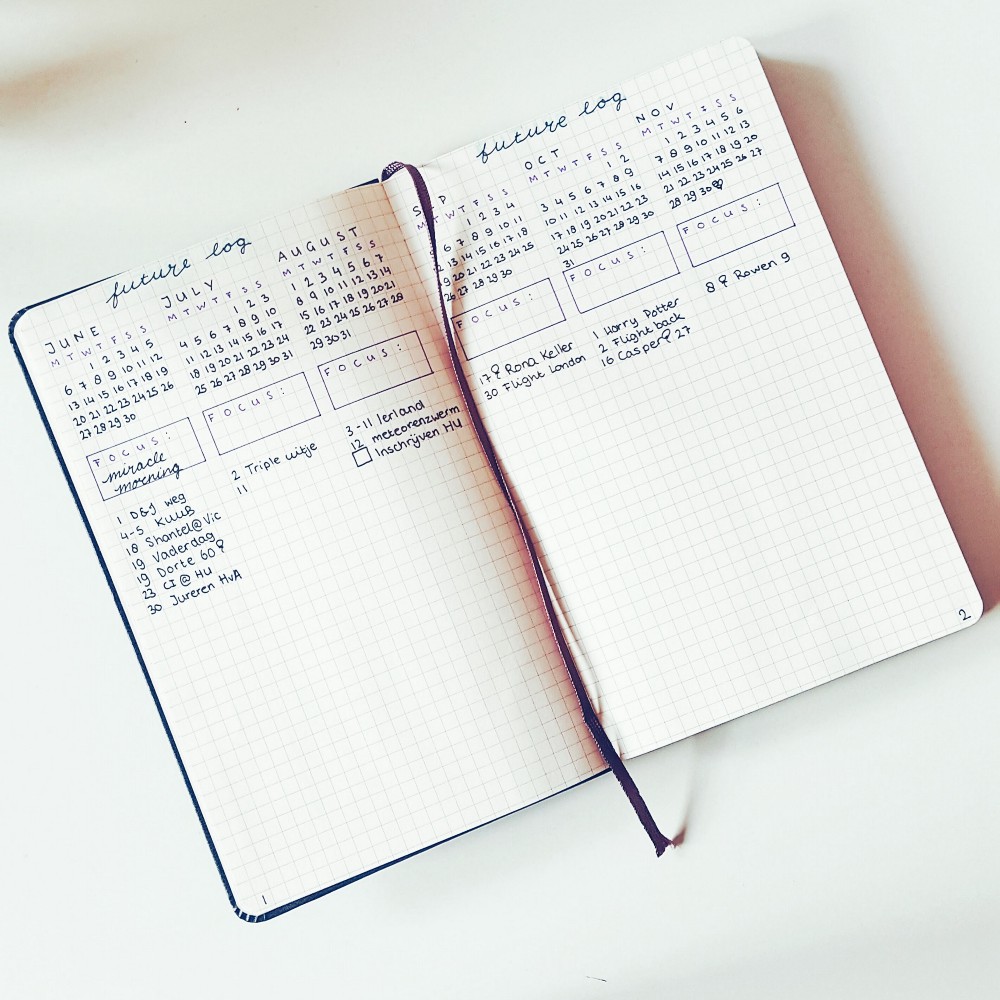 future log
JUNE
M T W T F S S
1 2 3 4 5
6 7 8 9 10 11 12
13 14 15 16 17 18 19
20 21 22 23 24 25 26
27 28 29 30
FOCUS:
miracle
morning
1 D&J weg
4-5 KUUB
18 Shantel@Vic
19 Vaderdag
19 Dorte 60
23 CI @ HU
30 Jureren HvA
JULY
M T W T F S S
1 2 3
4 5 6 7 8 9 10
11 12 13 14 15 16 17
18 19 20 21 22 23 24
25 26 27 28 29 30 31
FOCUS:
2 Triple uitje
11
AUGUST
M T W T F S S
1 2 3 4 5 6 7
8 9 10 11 12 13 14
15 16 17 18 19 20 21
22 23 24 25 26 27 28
29 30 31
FOCUS:
3-11 Ierland
12 meteorenzwerm
☐ Inschrijven HU
1
future log
SEP
M T W T F S S
1 2 3 4
6 7 8 9 10 11
13 14 15 16 17 18
20 21 22 23 24 25
26 27 28 29 30
FOCUS:
17 Rona Keller
30 Flight London
OCT
M T W T F S S
1 2
3 4 5 6 7 8 9
10 11 12 13 14 15 16
17 18 19 20 21 22 23
24 25 26 27 28 29 30
31
FOCUS:
1 Harry Potter
2 Flight back
16 Casper 27
NOV
M T W T F S S
1 2 3 4 5 6
7 8 9 10 11 12 13
14 15 16 17 18 19 20
21 22 23 24 25 26 27
28 29 30
FOCUS:
8 Rowen 9
2